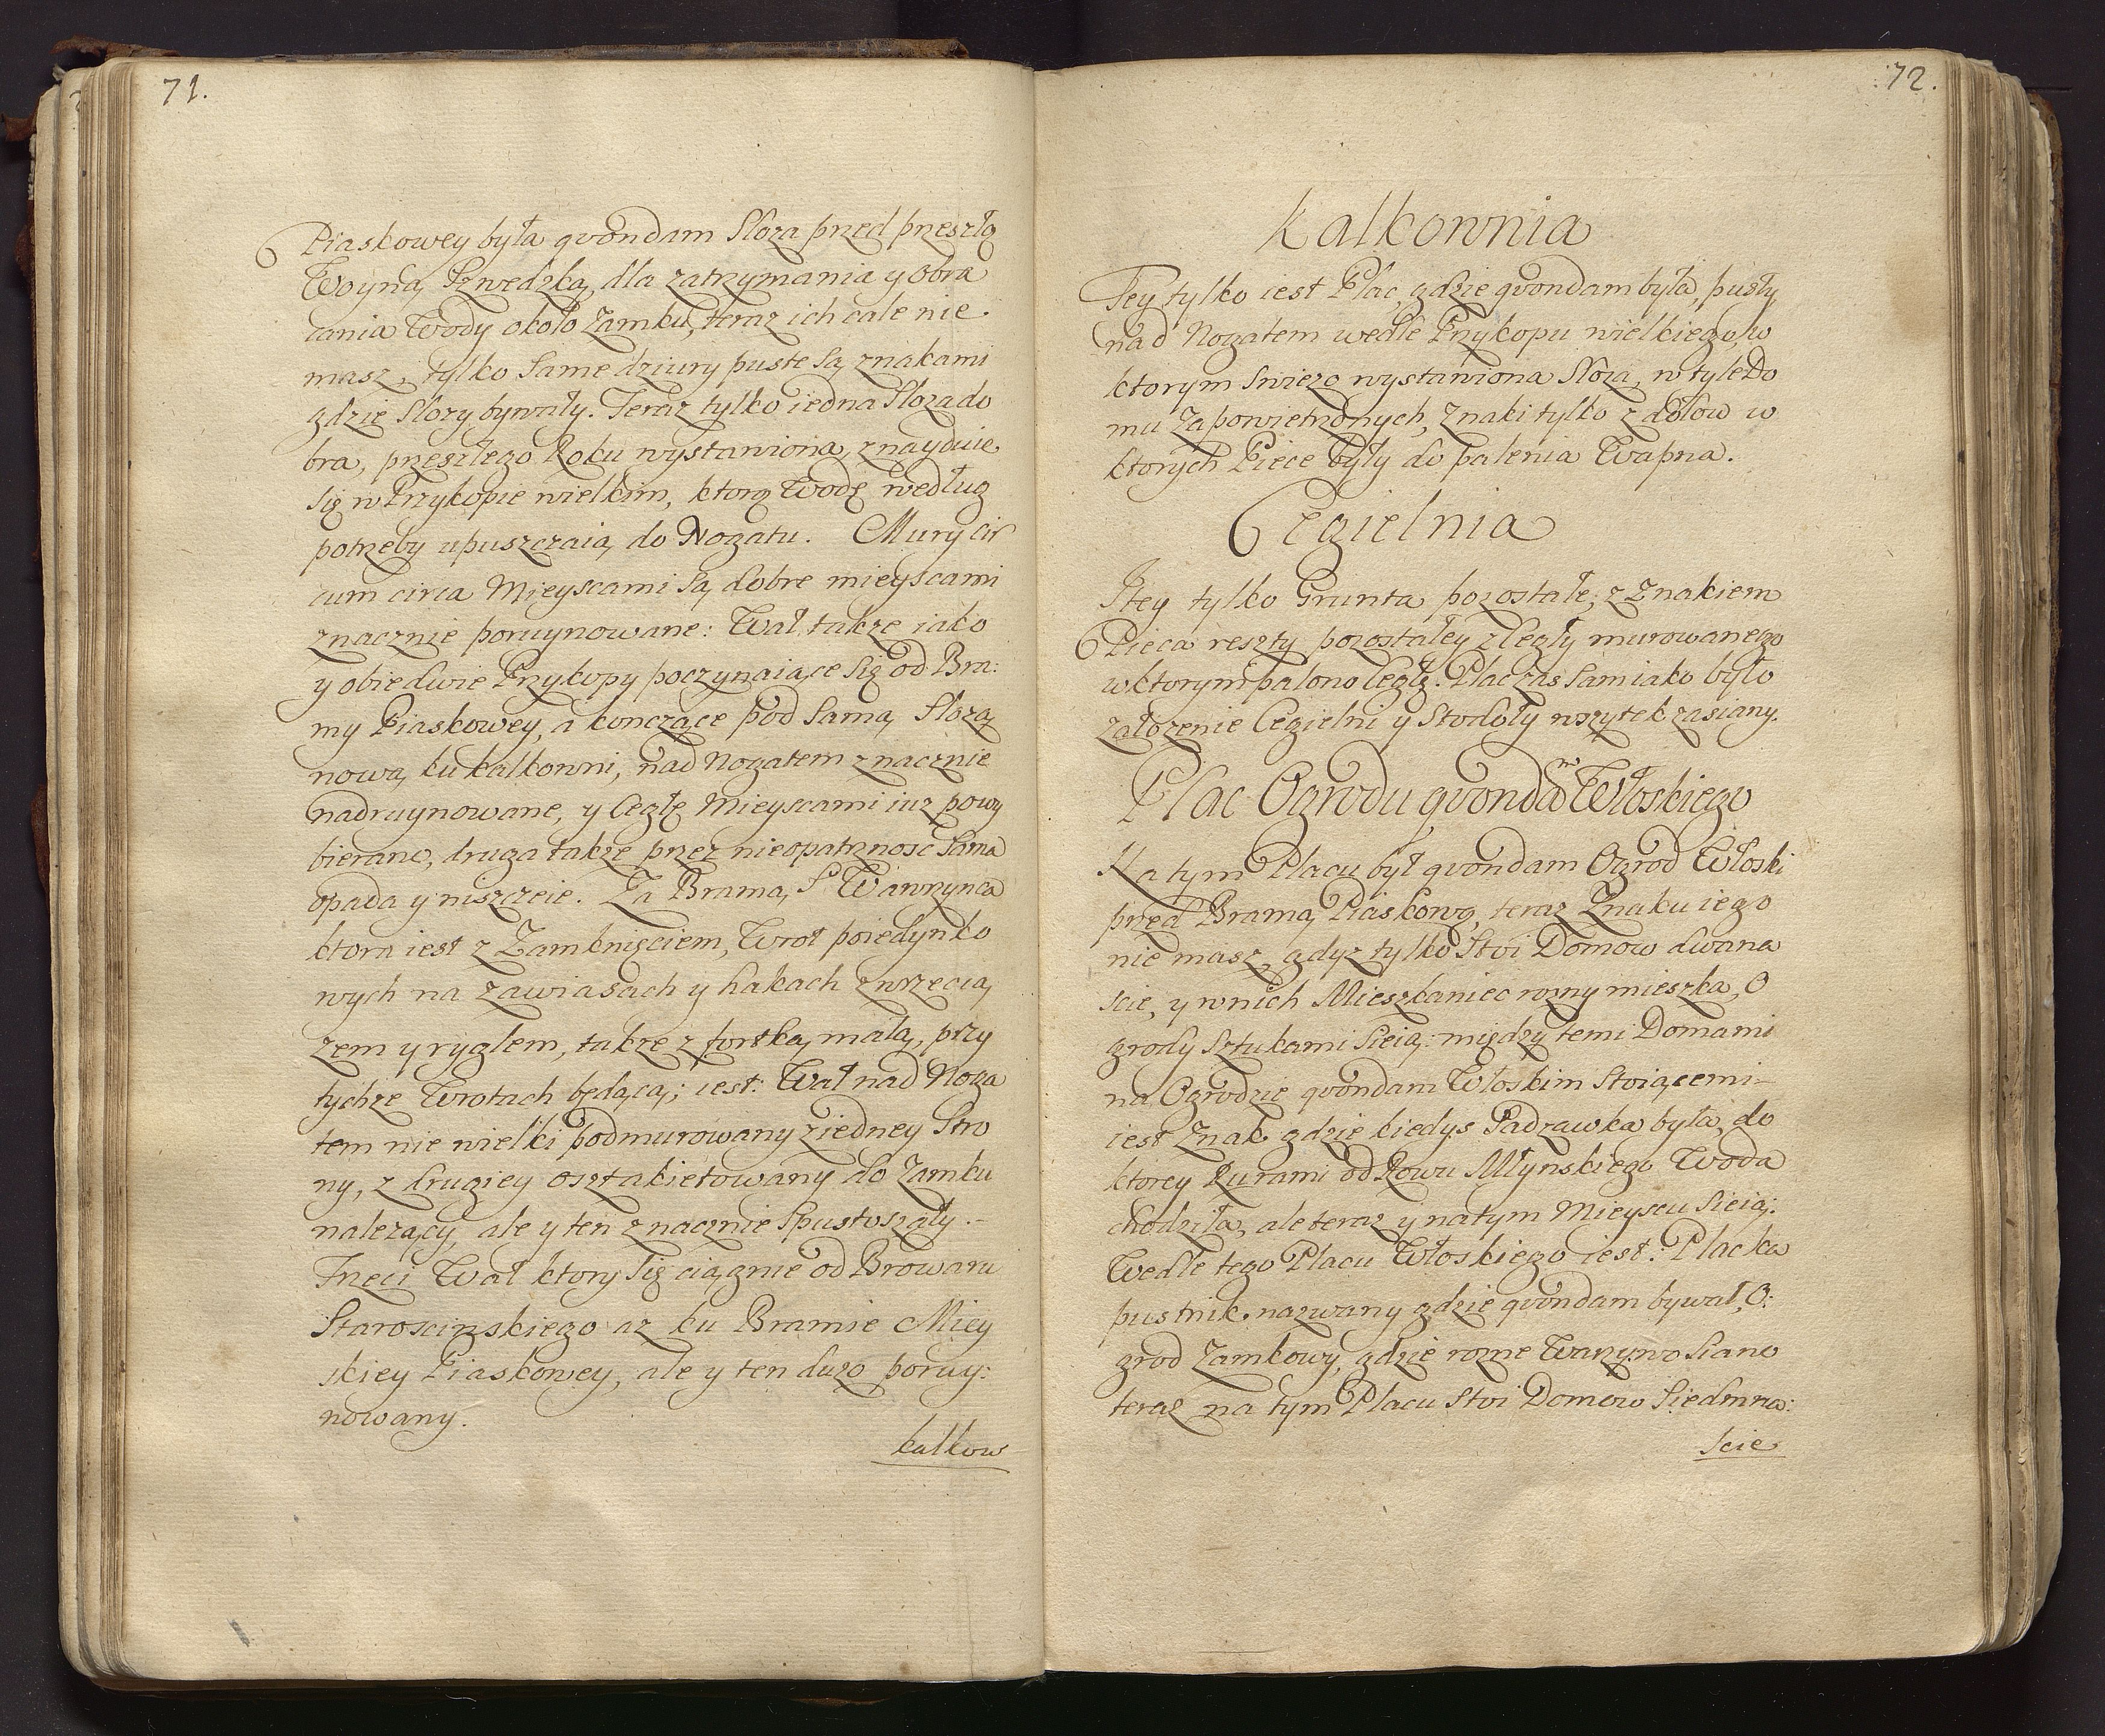 71.
Piaskowey była qvondam Sloza przed przeszłą
Woyną Szwedzką, dla zatrzymania y obra
cania Wody około Zamku, teraz ich cale nie
masz, tylko Same dziury puste Są, znakami
gdzie Slozy bywały. Teraz tylko iedna Sloza do
bra, przeszłego Roku wystawiona, znayduie
Się w Przykopie wielkim, ktorą Wodę według
potrzeby upuszczaią do Nogatu. Mury cir
cum circa Mieyscami Są dobre mieyscami
znacznie poruynowane: Wał także iako
y obiedwie Przykopy poczynaiące Się od Bra:
my Piaskowey, a konczące pod Samą Slozą
nową ku kalkowni, nad Nogatem znacznie
nadruynowane, y Cegłę Mieyscami iuz powy
bierano, druga także przez nieopatrznosc Sama
opada y niszczeie. Za Bramą S Wawrzynca
ktora iest z Zamknięciem, Wrot poiedynko
wych na zawiasach y hakach z wrzecią
zem y ryglem, także z fortką małą, przy
tychze Wrotach będącą; iest: Wał nad Noga
tem nie wielki podmurowany z iedney Stro
ny, z drugiey osztakietowany do Zamku
nalezący, ale y ten znacznie Spustoszały.-
Trzeci Wał ktory Się ciągnie od Browaru
Staroscinskiego az ku Bramie Miey
skiey Piaskowey, ale y ten duzo poruy:
nowany.
kalkow
72.
Kalkownia
Tey tylko iest Plac, gdzie qvondam była, pusty
nad Nogatem wedle Przykopu wielkiego, w
ktorym Swiezo wystawiona Sloza, w tyle Do
mu Zapowietrzonych, Znaki tylko z dołow w
ktorych Piece były do palenia Wapna.
Cegielnia
Y tey tylko Grunta pozostałe, z Znakiem
Pieca reszty pozostałey z Cegły murowanego
w ktorym palono Cegłę. Plac zas Sam iako było
załozenie Cegielni y Stodoły wszytek zasiany.
Plac Ogrodu qvondam Włoskiego
Na tym Placu był qvondam Ogrod Włoski
przed Bramą Piaskową, teraz Znaku iego
nie masz, gdyz tylko Stoi Domow dwana
scie, y w nich Mieszkaniec rozny mieszka, O
grody Sztukami Sieią: między temi Domami
na Ogrodzie qvondam Włoskim Stoiącemi-
iest Znak gdzie kiedys Sadzawka była, do
ktorey Rurami od Rowu Młynskiego Woda
chodziła, ale teraz y na tym Mieyscu Sieią:
Wedle tego Placu Włoskiego iest: Plac ka
pustnik nazwany gdzie qvondam bywał, O:
grod Zamkowy, gdzie rozne Warzywo Siano
teraz na tym Placu Stoi Domow Siedmna:
scie